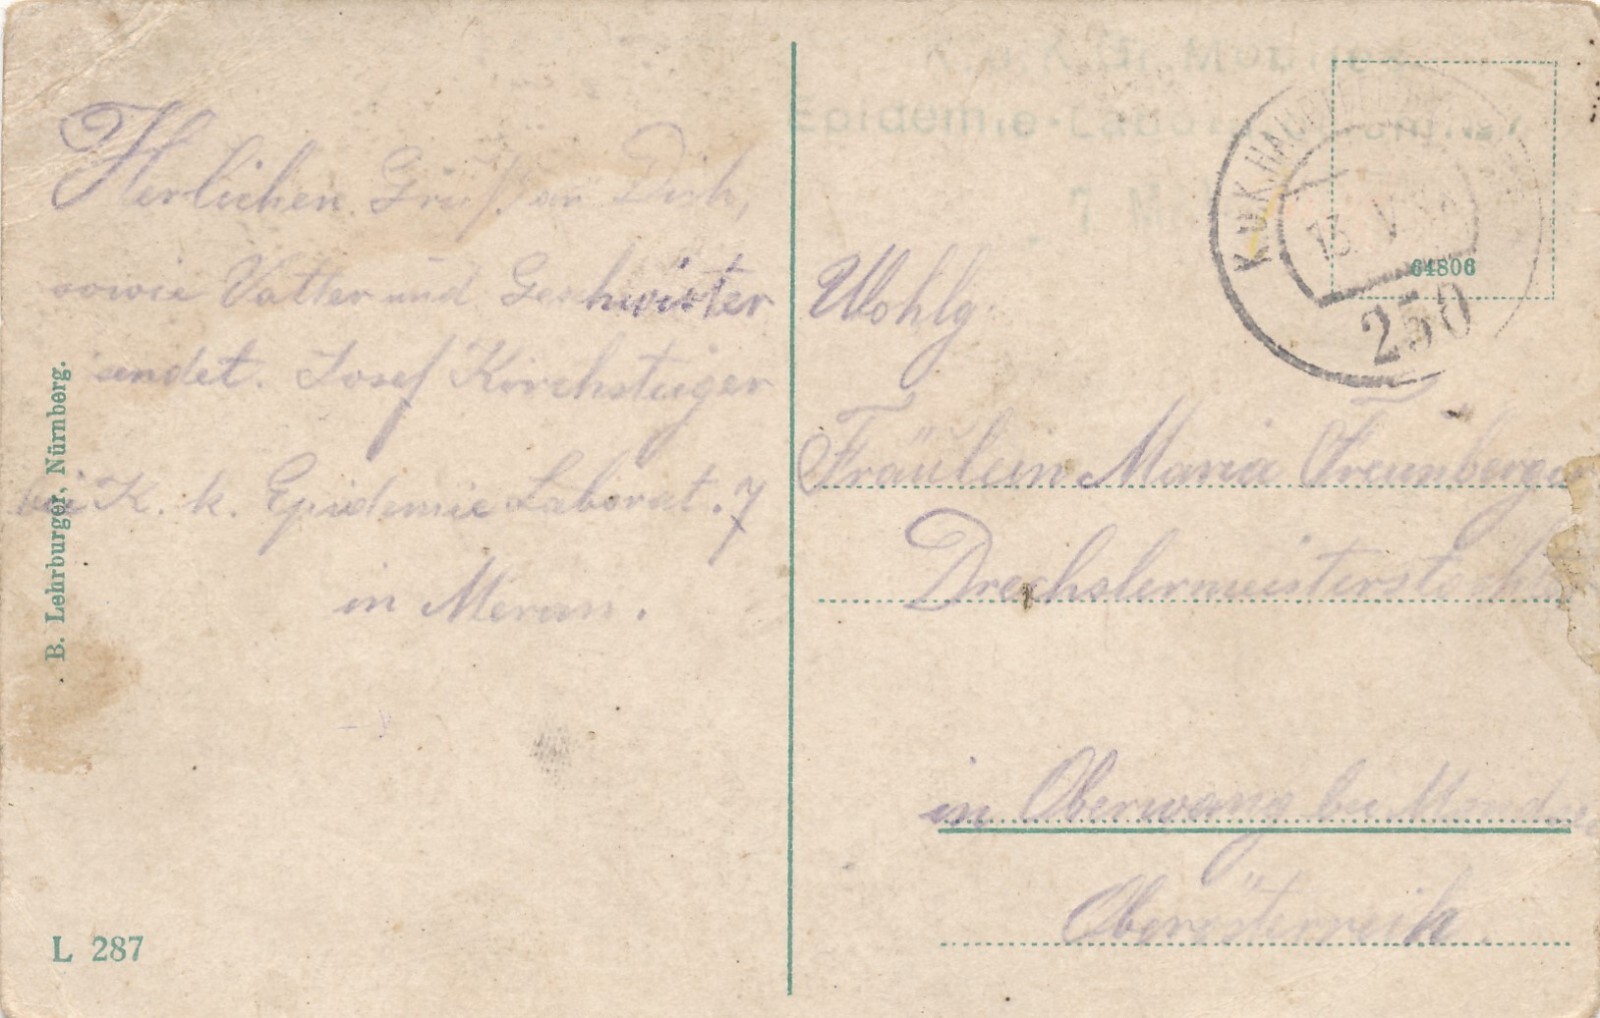 Herlichen Gruß an Dich,
sowie Vatter und Geschwister
sendet. Josef Kirchsteiger
bei K. k. Epidemie Laborat. 7
in Meran.
B. Lehrburger, Nürnberg.
L 287
K.u.K.
Epidemie-Labora
7
K.U.K. HAUP
V
250
64806
Wohlg.
Fräulein Maria Freunberger
Drechslermeisterstochter
in Oberwang bei Mondsee
Oberösterreich.